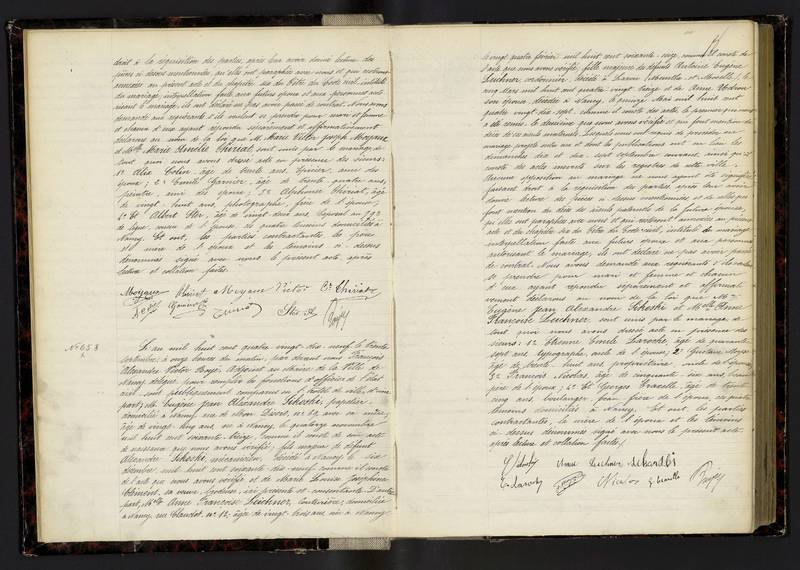 droit à la réquisition des parties, après leur avoir donné lecture des
pièces ci-dessus mentionnées, qu'elles ont paraphées avec nous et qui resteront
annexées au présent acte et du chapitre six du titre du Code civil, intitulé
du mariage, interpellation faite aux futurs époux et aux personnes auto
risant le mariage, ils ont déclaré ne pas avoir passé de contrat. Nous avons
demandé aux requérants s'ils veulent se prendre pour mari et femme
et chacun d'eux ayant répondu séparément et affirmativement
déclarons au nom de la loi que M. Marie Victor Joseph
et Mlle Marie Amélie Thiriat sont unis par le mariage de
tout quoi nous avons dressé acte en présence des sieurs:
1° Colin, âgé de trente ans, épicier, ami des
époux; 2° Camille Garnier, âgé de trente quatre ans,
peintre, ami des époux; 3° Alphonse Thiriat, âgé
de vingt huit ans, photographe, frère de l'épouse;
4° Et Albert, âgé de vingt deux ans, caporal au
de ligne, cousin de l'épouse, de quatre témoins domiciliés à
Nancy. Et ont, les parties contractantes, le père
et mère de l'époux et les témoins ci-dessus
dénommés signé avec nous le présent acte, après
lecture et collation faites.
Thiriat Victor Thiriat
N° 658
L'an mil huit cent quatre vingt dix neuf le trente
septembre, à onze heures du matin, par devant nous François
Alexandre Victor, Adjoint au Maire de la Ville de
Nancy délégué pour remplir les fonctions d'officier de l'état
civil sont publiquement comparus en l'hôtel de ville, d'une
part, M. Eugène Jean Alexandre, papetier,
domicilié à Nancy, rue de, avec sa mère,
âgé de vingt cinq ans, né à Nancy le quatorze novembre
mil huit cent soixante treize, comme il conste de son acte
de naissance que nous avons vérifié, fils majeur de défunt
Alexandre, mécanicien, décédé à Nancy le six
décembre mil huit cent soixante dix-neuf comme il conste
de l'acte que nous avons vérifié et de Marie Louise Joséphine
Clément, sa veuve, ici présente et consentante. D'autre
part, Mlle Anne Françoise Leichner, couturière, domiciliée
à Nancy, rue Claudot, n° 12, âgée de vingt trois ans, née à Nancy
le vingt quatre février mil huit cent soixante seize, comme il conste de
l'acte que nous avons vérifié, fille majeure de défunts Antoine Eugène
Leichner, cordonnier, décédé à (Meurthe et Moselle), le
cinq Mars mil huit cent quatre vingt treize et de Anne
son épouse, décédée à Nancy, le quinze Mars mil huit cent
quatre vingt dix-sept, comme il conste des actes, le premier que nous
a été remis, le deuxième que nous avons vérifié et qui font mention du
décès de ses aïeuls maternels. Lesquels nous ont requis de procéder au
mariage projeté entre eux et dont les publications ont eu lieu les
dimanches dix et dix-sept septembre courant, ainsi qu'il
conste des actes inscrits sur les registres de cette ville.
Aucune opposition au mariage ne nous ayant été signifiée
faisant droit à la réquisition des parties, après leur avoir
donné lecture des pièces ci-dessus mentionnées et de celles qui
font mention du décès des aïeuls paternels de la future épouse,
qu'elles ont paraphées avec nous et qui resteront annexées au présent
acte et du chapitre six du titre du Code civil, intitulé du mariage
interpellation faite aux futurs époux et aux personnes
autorisant le mariage, ils ont déclaré ne pas avoir passé
de contrat. Nous avons demandé aux requérants s'ils veulent
se prendre pour mari et femme et chacun
d'eux ayant répondu séparément et affirmati
vement déclarons au nom de la loi que M.
Eugène Jean Alexandre et Mlle Anne
Françoise Leichner sont unis par le mariage de
tout quoi nous avons dressé acte en présence des
sieurs: 1° Etienne Emile Laroche, âgé de quarante
sept ans, typographe, oncle de l'époux; 2° Gustave
âgé de trente huit ans, propriétaire, oncle de l'époux;
3° François Nicolas, âgé de cinquante six ans,
de l'époux; 4° Et Georges, âgé de trente
cinq ans, boulanger, frère de l'époux, de quatre
témoins domiciliés à Nancy. Et ont, les parties
contractantes, la mère de l'époux et les témoins
ci-dessus dénommés signé avec nous le présent acte
après lecture et collation faites.
Anne Leichner
Laroche Nicolas